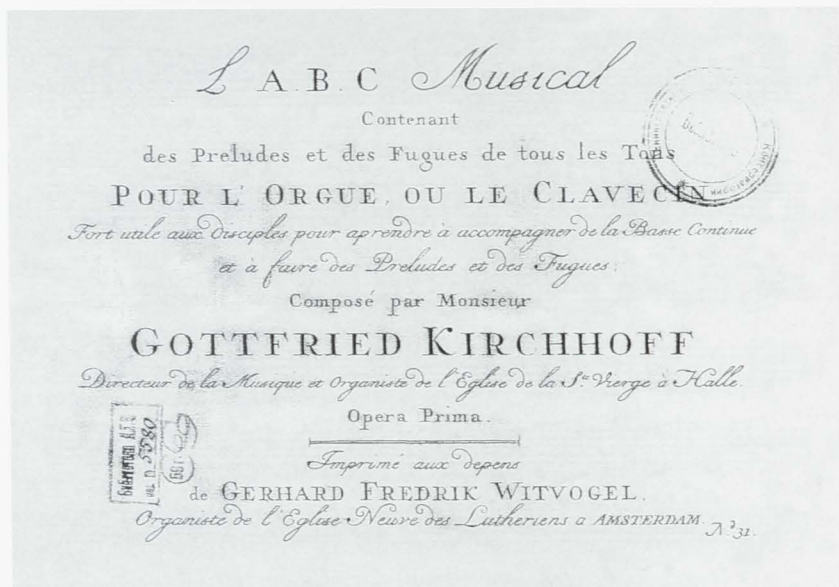 L'A.B.C Musical
Contenant
des Preludes et des Fugues de tous les Tons
POUR L'ORGUE, OU LE CLAVECIN
Fort utile aux disciples pour aprendre à accompagner de la Basse Continue
et à faire des Preludes et des Fugues.
Composé par Monsieur
GOTTFRIED KIRCHHOFF
Directeur de la Musique et Organiste de l'Eglise de la Ste. Vierge à Halle.
Opera Prima.
Imprimé aux depens
de GERHARD FREDRIK WITVOGEL.
Organiste de l'Eglise Neuve des Lutheriens a AMSTERDAM.
No. 31.
5580